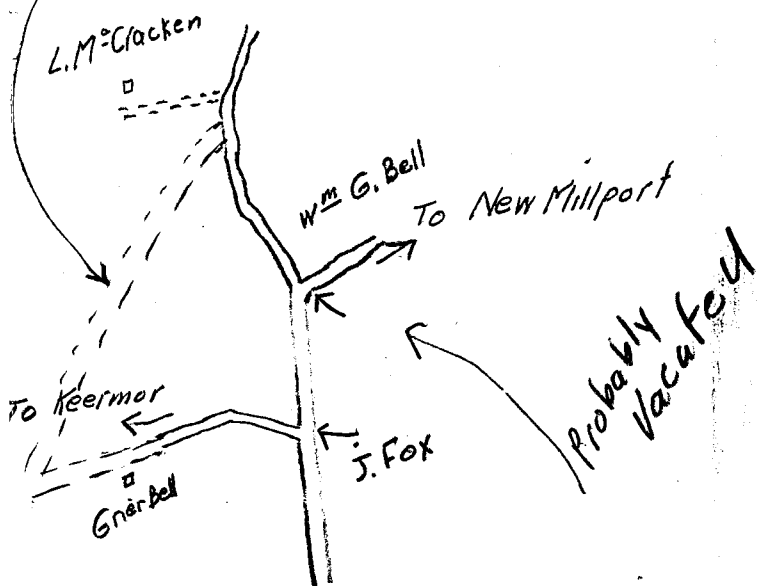 L. McCracken
Wm G. Bell
To New Millport
Probably
Vacated
To Keermor
J. Fox
Grier Bell